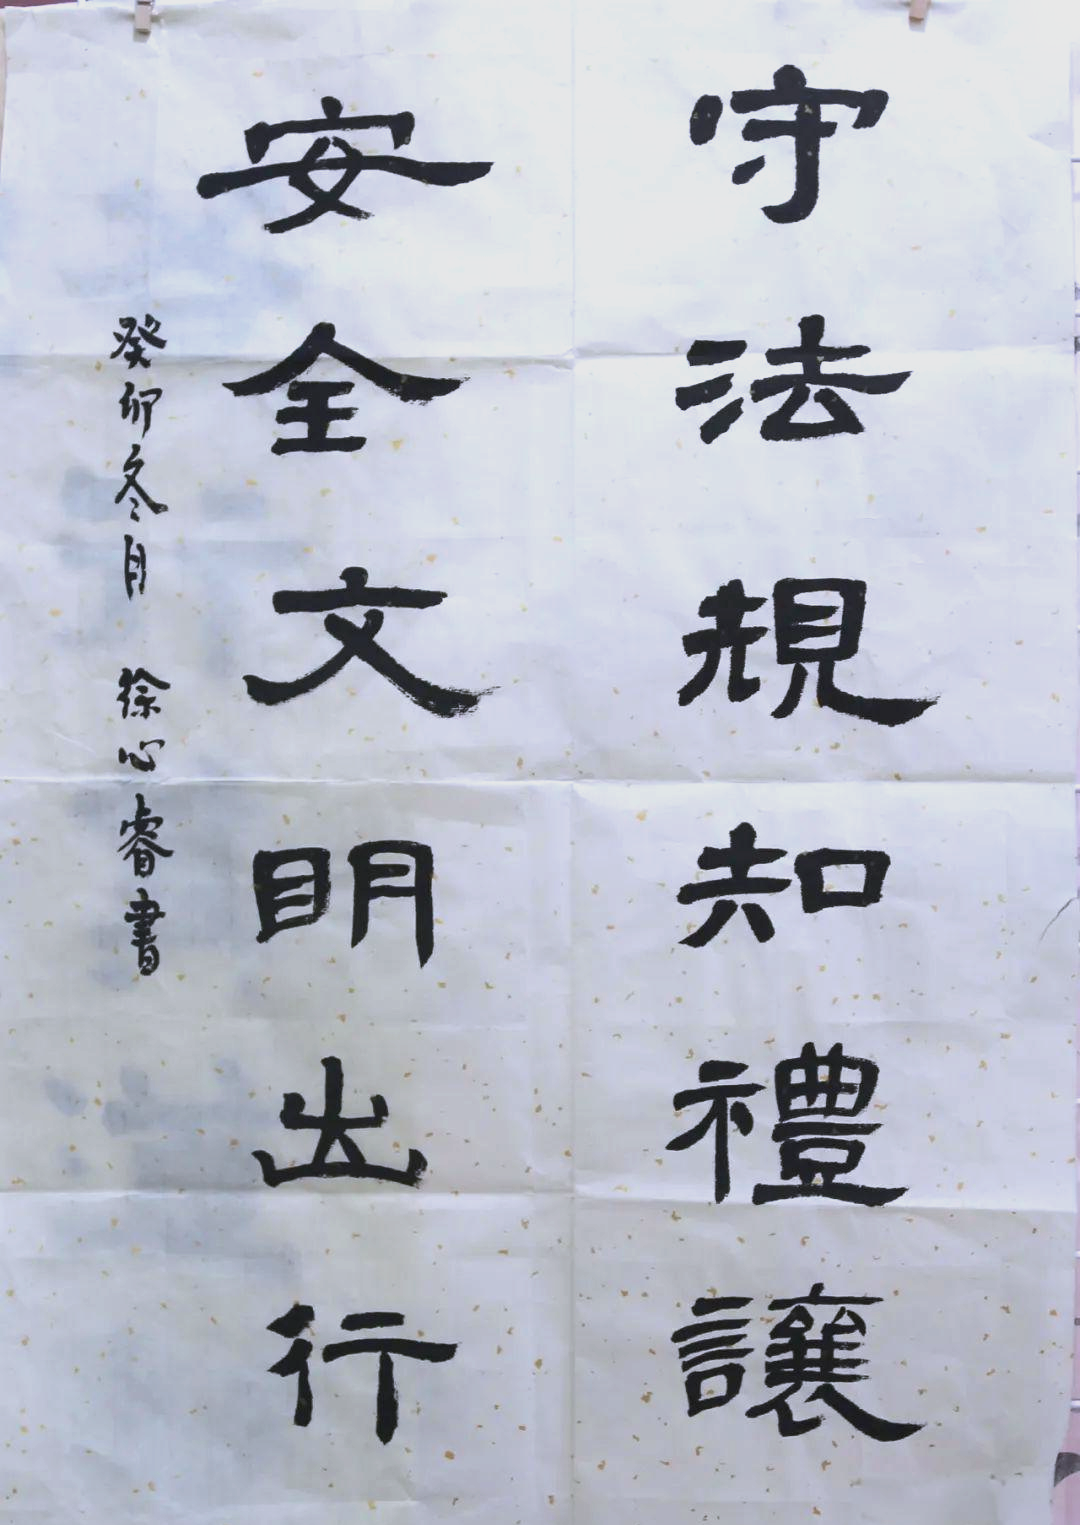 守法規知禮讓
安全文明出行
癸卯冬月 徐心睿書